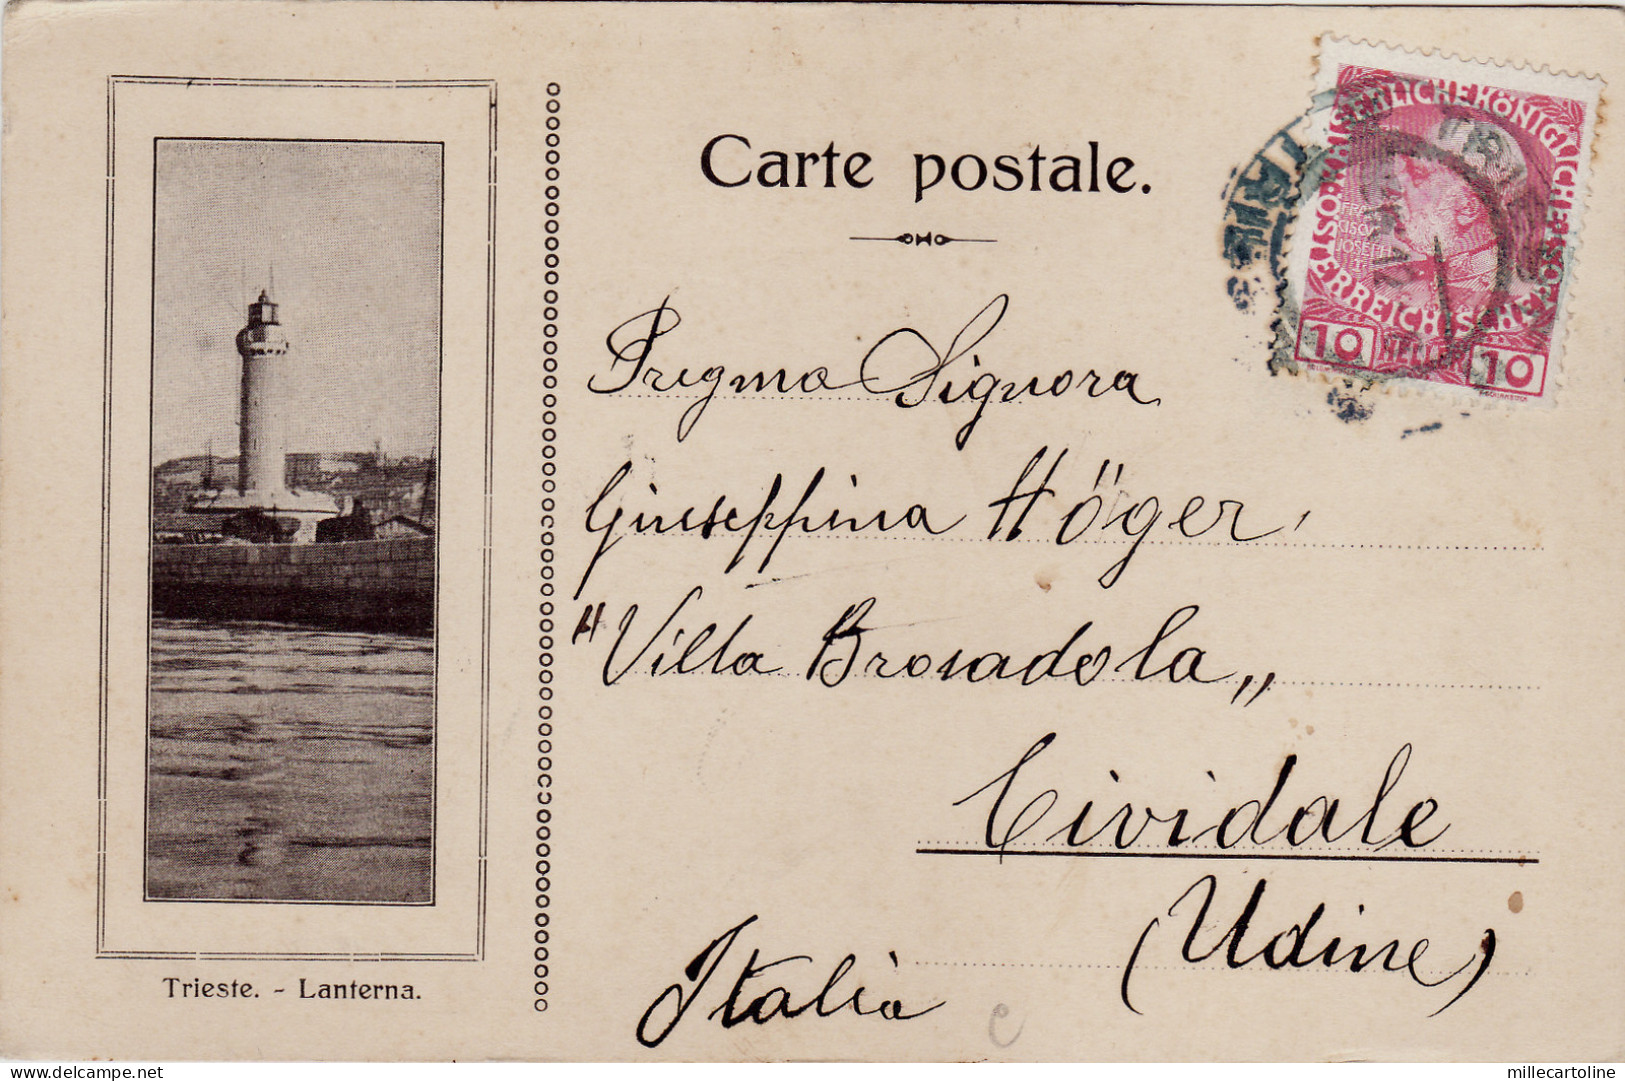 Carte postale.
KAISERLICHE KÖNIGLICHE POST
ÖSTERREICHISCHE
FRANZ
JOSEPH
I
10 HELLER 10
Pregma Signora
Giuseppina Höger,
"Villa Brosadola„
Cividale
(Udine)
Italia
Trieste. - Lanterna.
millecartoline